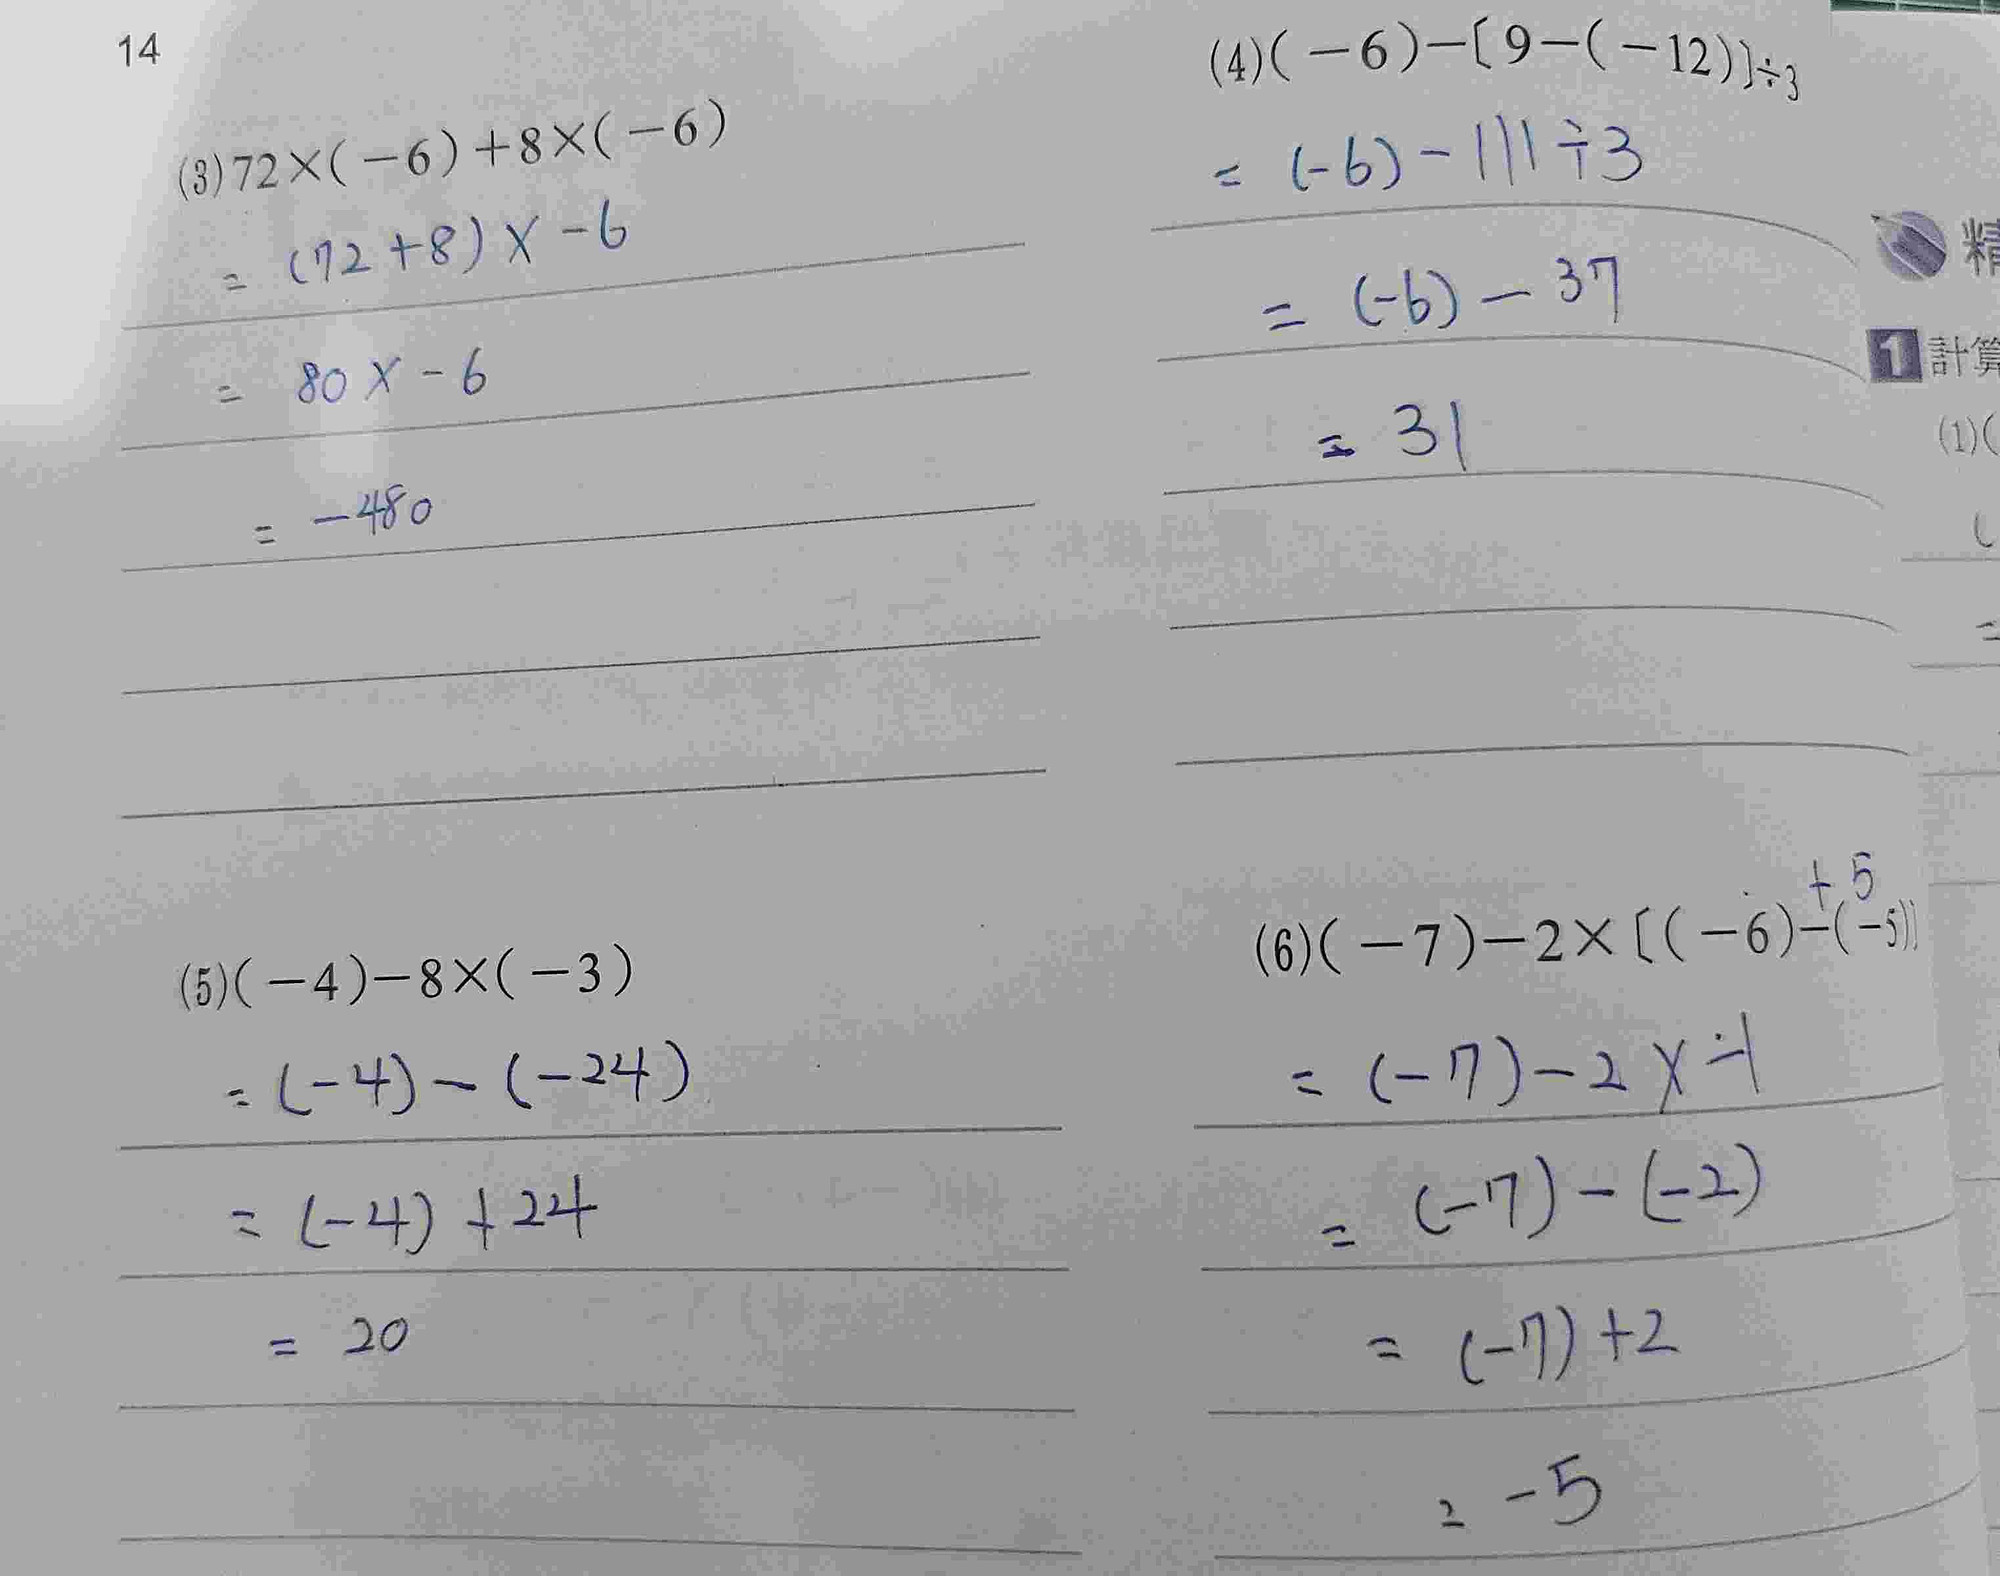 14
(3)72×(-6)+8×(-6)
= (72+8)×-6
= 80×-6
= -480
(4)(-6)-[9-(-12)]÷3
= (-6)-111÷3
= (-6)-37
= 31
(5)(-4)-8×(-3)
= (-4)-(-24)
= (-4)+24
= 20
+5
(6)(-7)-2×[(-6)-(-5)]
= (-7)-2×-1
= (-7)-(-2)
= (-7)+2
= -5
精
1 計算
(1)(
(
=